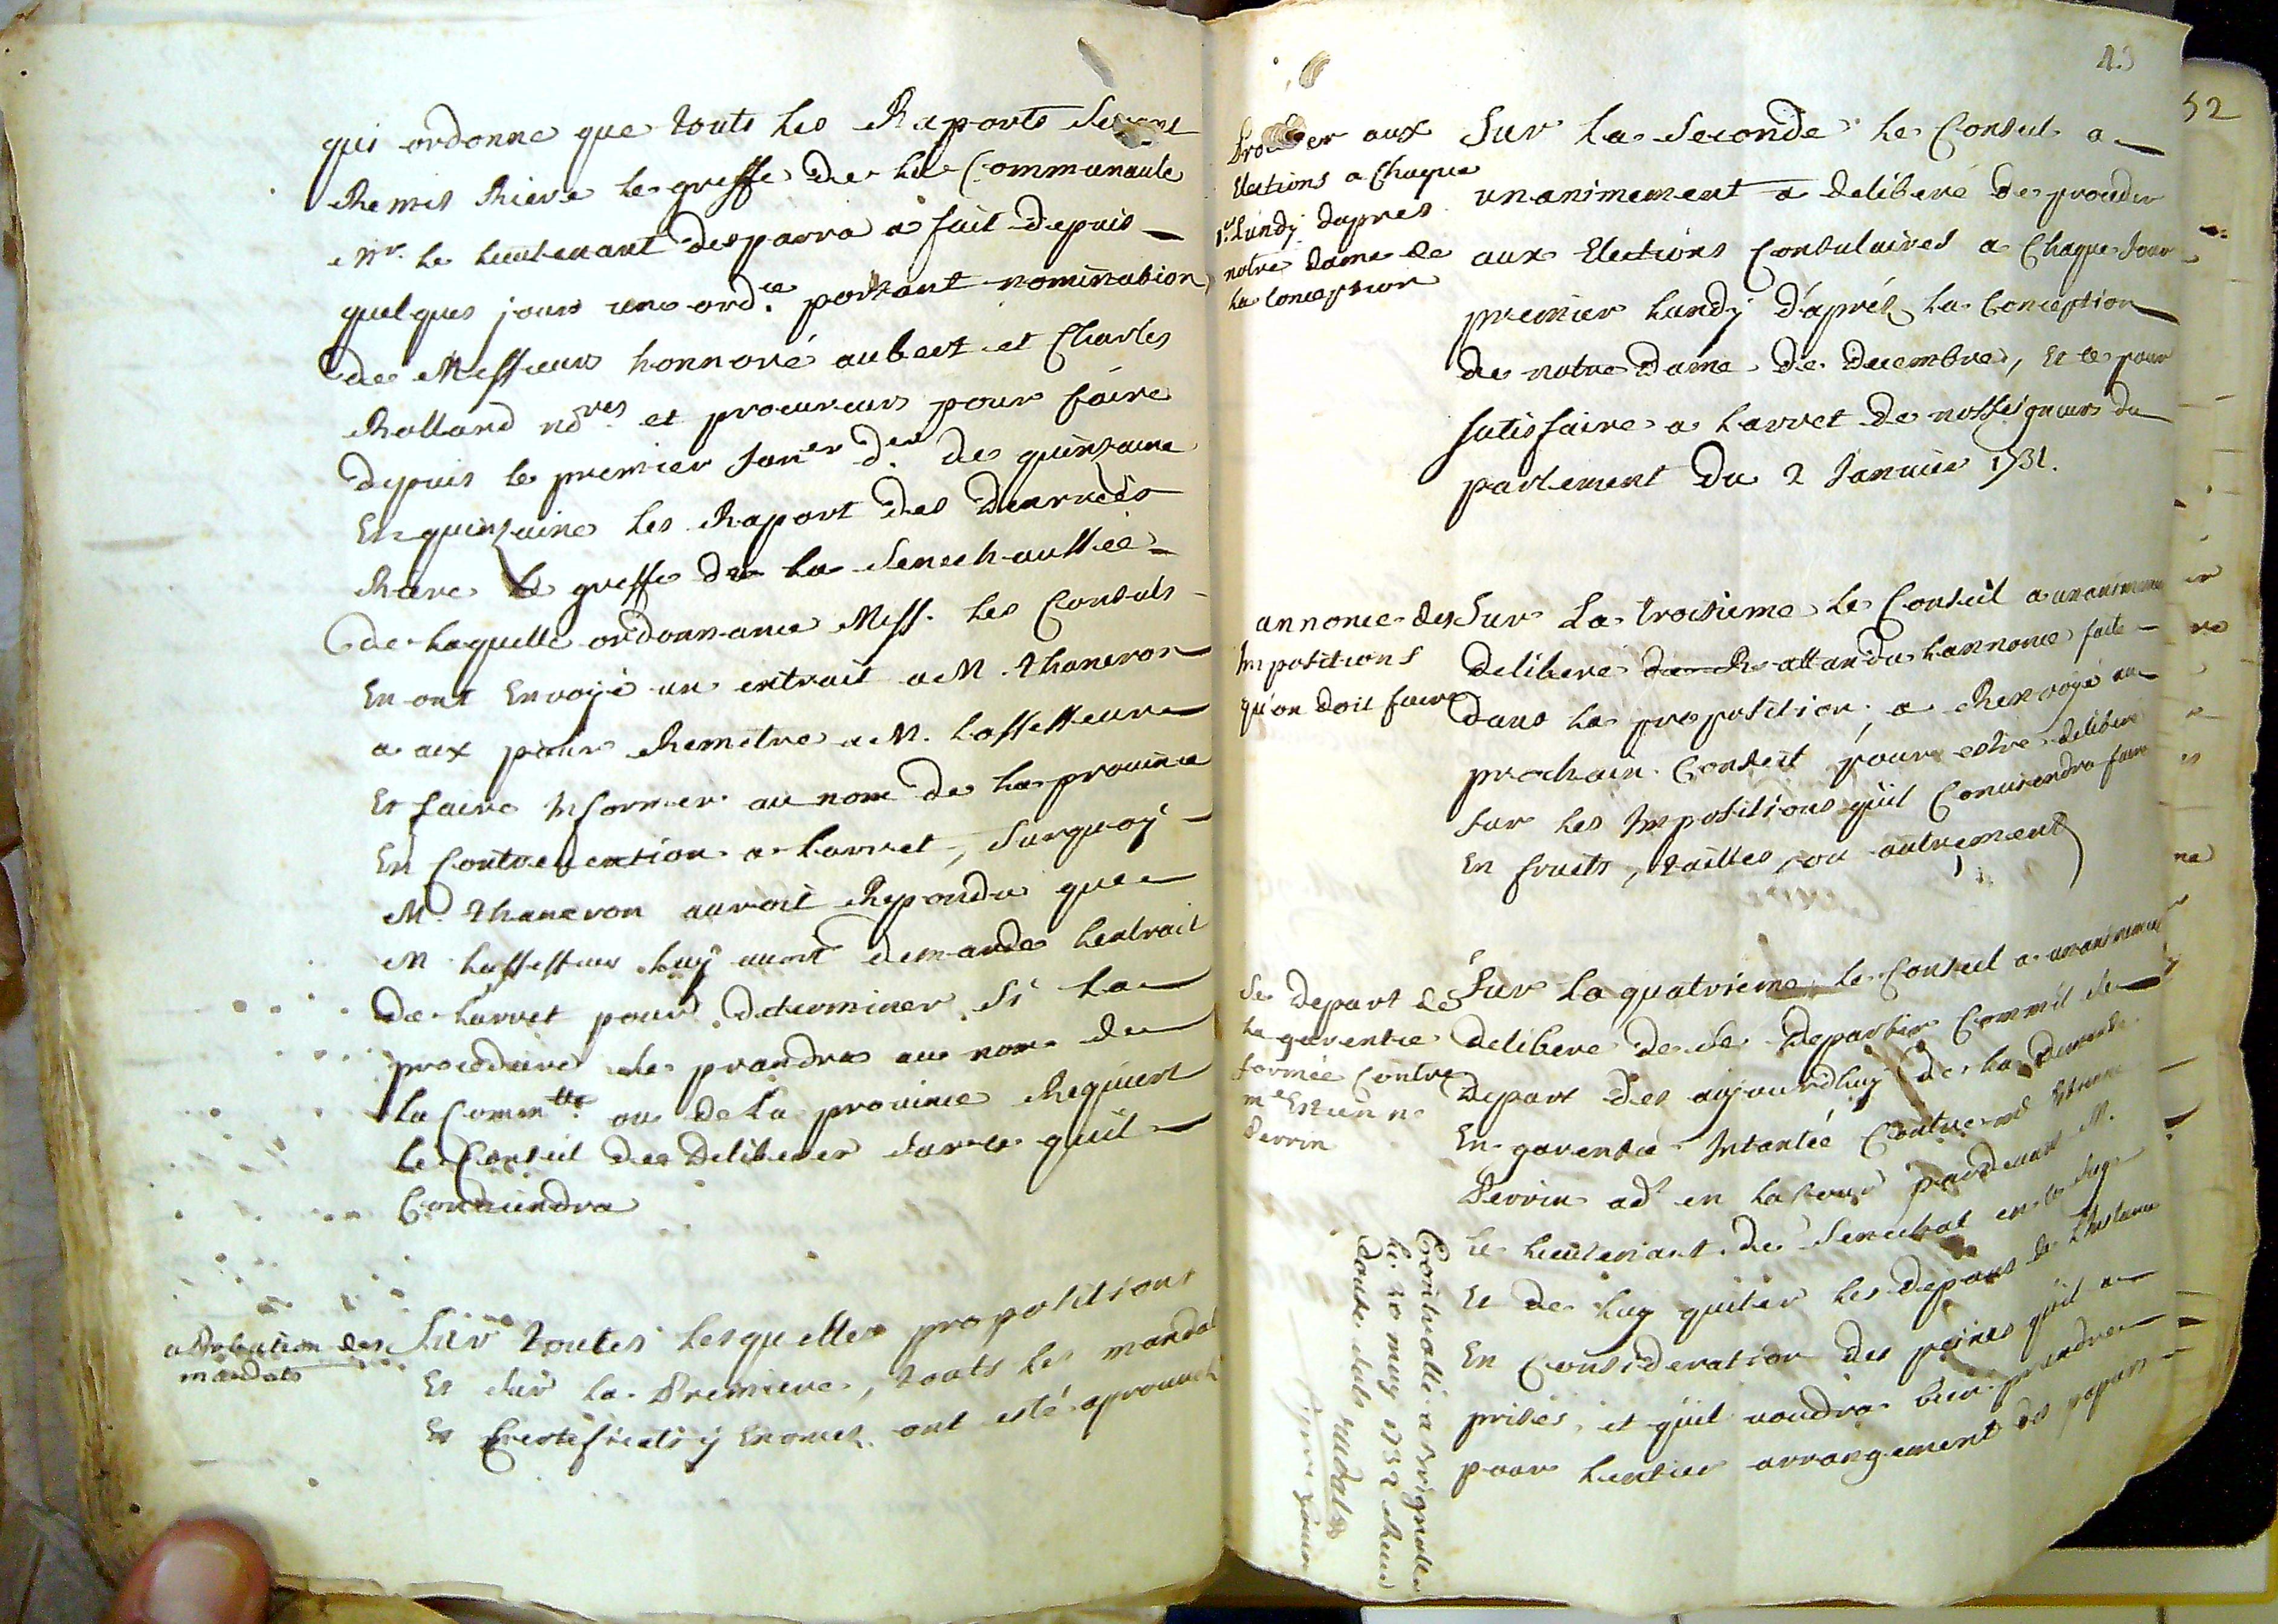 qui ordonne que touts les Raports seront
Remis Rieve le greffe de la Communaute
Mr. le lieutenant desparra a fait depuis
quelques jours une ord.ce portant nomination
de Messieurs honnoré aubert et Charles
Rolland no.res et procureurs pour faire
depuis le premier Janer d.er de quinzaine
En quinzaine les Raport des Danrées
Rieve le greffe de la Senechaussée
de laquelle ordonnance Mess. les Consuls
En ont Envoyé un extrait a M. Thaneron
a aix pour Remetre a M. lassesseur
Et faire Informer au nom de la province
En Contrevention a larret, Surquoy
M. Thaneron auroit Repondu que
M lassesseur luy auroit demande lextrait
de larret pour determiner si la
procedure se prandra au nom de
la Comm.tté ou de la province Requiert
le Conseil de Deliberer sur ce quil
Conviendra
aprobation des
mandats
Sur toutes lesquelles propositions
Et sur la Premiere, touts les mandats
Et Certificats y Enoncés ont esté aprouvés
43
52
Proceder aux
Elections a Chaque
1.er Lundy dapres
notre dame de
la Conception
Sur la Seconde le Conseil a
unanimement a deliberé de proceder
aux Elections Consulaires a Chaque Jour
premier lundy d'aprés la Conception
de notre Dame de Decembre, et ce pour
satisfaire a larret de nosseigneurs du
parlement Du 2 Janvier 1731.
annonce des
Impositions
qu'on doit faire
Sur La troisieme le Conseil a unanimem
deliberé attandu lannonce faite
dans la proposition, a Renvoyé au
prochain Conseil pour estre deliberé
sur les Impositions quil Conviendra faire
En fruits, tailles, ou autrement
Se depart de
la garentie
formée Contre
me Estienne
Perrin
Sur la quatrieme le Conseil a unanimem
delibere de se Departir Comm'il se
Depart des aujourdhuy de la Demande
En garentie Intantée Contre me Estienne
Perrin ad.t en la Cour pardevant M.
le lieutenant de Senechal en ce siege
Et de luy quiter les depans de Linstance
En Consideration des peines quil a
prises, et quil voudra bien prandre
pour lentier arrangement des papiers
Controllé a Brignolle
le 20 may 1732 Receu
douze sols